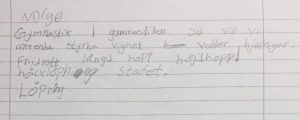 NORge
Gymnastik I gymnastiken så vill vi
använda styrka vighet kunna volter hjulningar
Friidrott längd hopp höjdhopp
häcklöpning stafet.
Löpning